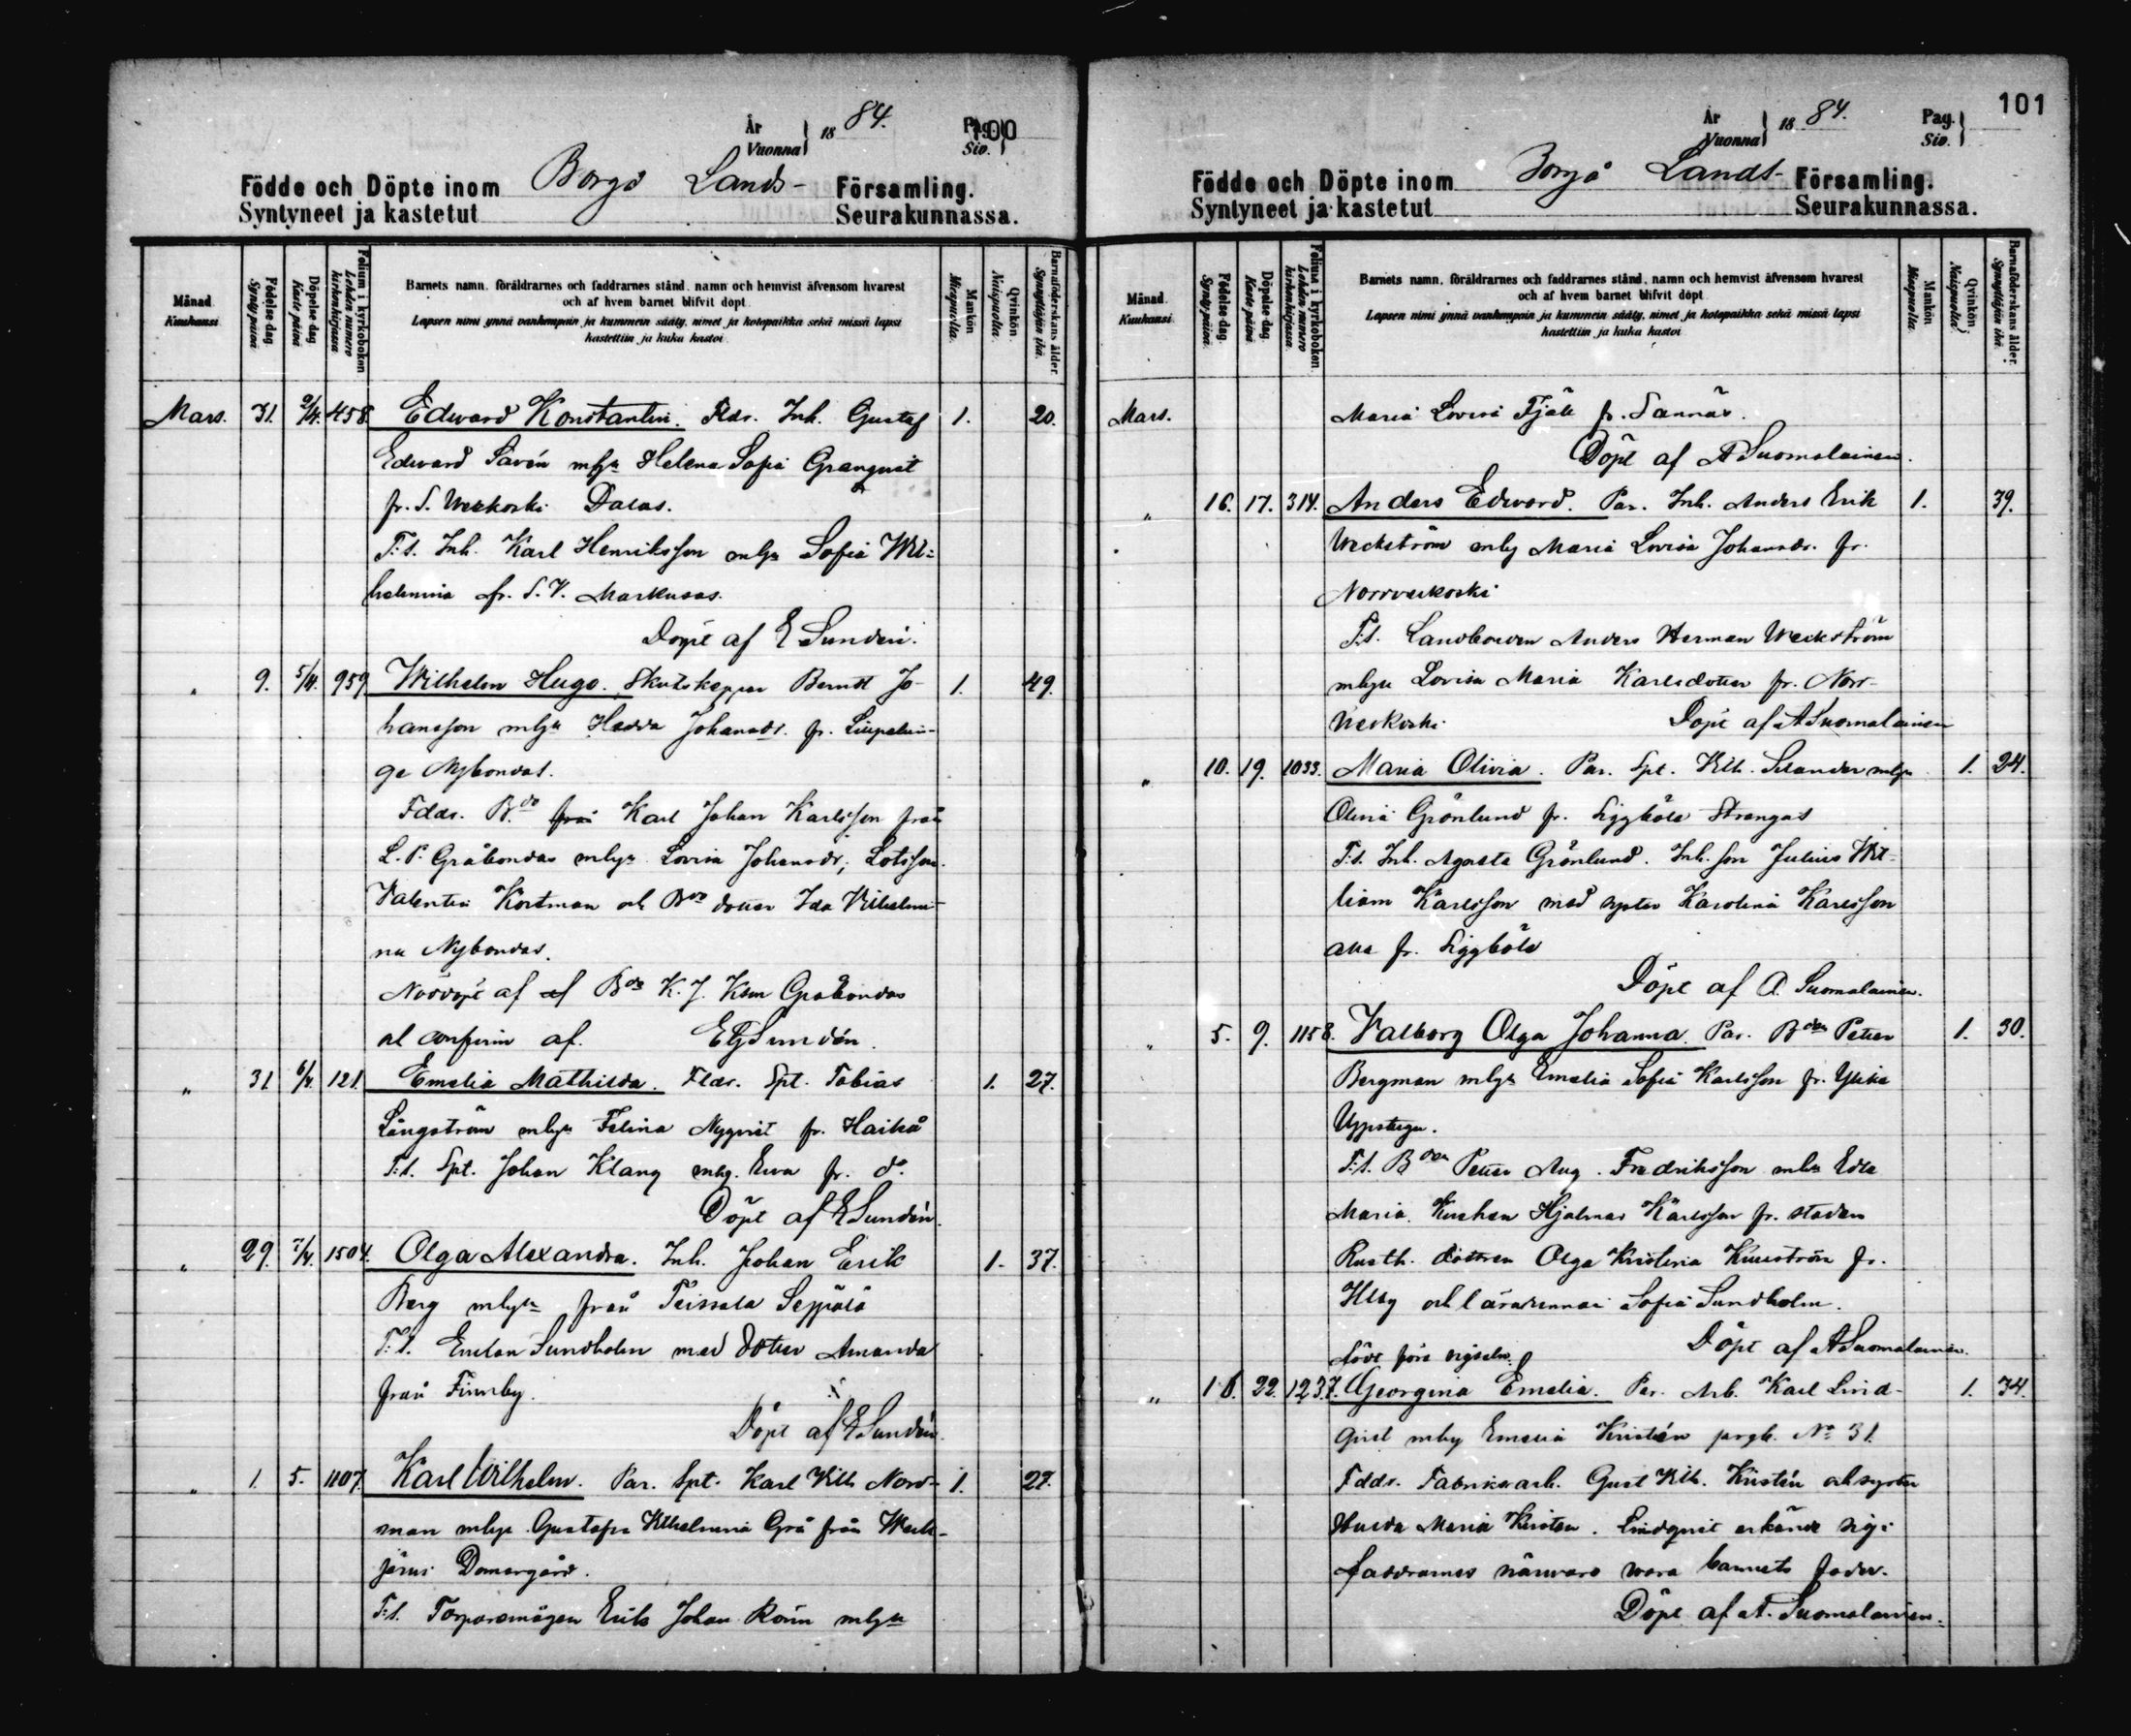 År
Vuonna } 18 84. Pag.
Siv. } 100
Födde och Döpte inom Borgå Lands- Församling.
Syntyneet ja kastetut Seurakunnassa.
Månad.
Kuukausi.
Födelse dag.
Synty päivä.
Döpelse dag.
Kaste päivä
Folium i kyrkoboken
Lehden numero kirkonkirjassa
Barnets namn, föräldrarnes och faddrarnes stånd, namn och hemvist äfvensom hvarest
och af hvem barnet blifvit döpt.
Lapsen nimi ynnä vanhempain ja kummein sääty, nimet ja kotopaikka sekä missä lapsi
kastettiin ja kuka kastoi.
Mankön.
Miespuolia.
Qvinkön.
Naispuolia.
Barnaföderskans ålder.
Synnyttäjän ikä.
Mars. 31. 2/4. 458. Edward Konstantin. Fldr. Inh. Gustaf 1. 20.
Edward Savén mhu Helena Sofia Granqvist
fr. S. Weckoski Dalas.
T:s. Inh. Karl Henriksson mhu Sofia Wil-
helmina fr. S. V. Markusas.
Döpt af E Sundén.
" 9. 5/4. 959. Wilhelm Hugo. Skutskeppar Berndt Jo- 1. 49.
hansson mhu Hedda Johansdr. fr.
ge Nybondas.
Fddr. Bdo från Karl Johan Karlsson från
L. P. Gråbondas mhu Lovisa Johansdr, Lotsson
Valentin Kortman och Bde dotter Ida Wilhelmi-
na Nybondas.
Nöddöpt af af Bds K. J. Kson Gråbondas
och confirm af. E Sundén.
" 31. 6/4. 121. Emelia Mathilda. Fldr. Spt. Tobias 1. 27.
Långström mhu Felina Nyqvist fr. Haikå
T:s. Spt. Johan Klang mhg. Ewa fr. do.
Döpt af E Sundén.
" 29. 7/4. 1504. Olga Alexandra. Inh. Johan Erik 1. 37.
Berg mhu från Teissala Seppälä
T:s. Enkan Sundholm med dotter Amanda
från Finnby.
Döpt af E Sundén.
" 1. 5. 1107. Karl Wilhelm. Par. Spt. Karl Vilh Nord- 1. 27.
man mhu Gustafva Vilhelmina Grå från Weck-
järvi Domargård.
T:s. Torparemågen Erik Johan mhu
År
Vuonna } 18 84. Pag.
Siv. } 101
Födde och Döpte inom Borgå Lands- Församling.
Syntyneet ja kastetut Seurakunnassa.
Månad.
Kuukausi.
Födelse dag.
Synty päivä.
Döpelse dag.
Kaste päivä.
Folium i kyrkoboken.
Lehden numero kirkonkirjassa.
Barnets namn, föräldrarnes och faddrarnes stånd, namn och hemvist äfvensom hvarest
och af hvem barnet blifvit döpt.
Lapsen nimi ynnä vanhempain ja kummein sääty, nimet ja kotopaikka sekä missä lapsi
kastettiin ja kuka kastoi
Mankön.
Miespuolia.
Qvinkön.
Naispuolia.
Barnaföderskans ålder.
Synnyttäjän ikä.
Mars. Maria Lovisa Fjäll fr. Sannäs.
Döpt af A Suomalainen.
" 16. 17. 314. Anders Edvard. Par. Inh. Anders Erik 1. 39.
Weckström mhg Maria Lovisa Johansdr. fr.
Norrveckoski
T:s. Landbonden Anders Herman Weckström
mhgu Lovisa Maria Karlsdotter fr. Norr-
veckoski. Döpt af A Suomalainen
" 10. 19. 1033. Maria Olivia. Par. Spt. Vilh. Selander mhu 1. 24.
Olivia Grönlund fr. Siggböle Strengas
T:s. Inh. Agusta Grönlund. Inh. son Julius Wil-
liam Karlsson med syster Karolina Karlsson
alla fr. Siggböle
Döpt af A. Suomalainen.
" 5. 9. 1158. Valborg Olga Johanna. Par. Bden Petter 1. 30.
Bergman mhu Emelia Sofia Karlsson fr. Ylike
Uppstugu.
T:s. Bden Petter Aug. Fredriksson mhu Edla
Maria. Kusken Hjalmar Karlsson fr. staden
Rusth. döttren Olga Kristina fr.
och lärarinnan Sofia Sundholm.
född före vigseln. Döpt af A Suomalainen.
" 16. 22. 1237. Georgina Emelia. Par. Arb. Karl Lind- 1. 34.
qvist mhg Emelia Kristén prgb. No 31.
Fddr. Fabriksarb. Gust Vilh. Kristén och syster
Hulda Maria Kristen. Lindqvist erkände sig i
faddrarnes närvaro vara barnets fader.
Döpt af A. Suomalainen.